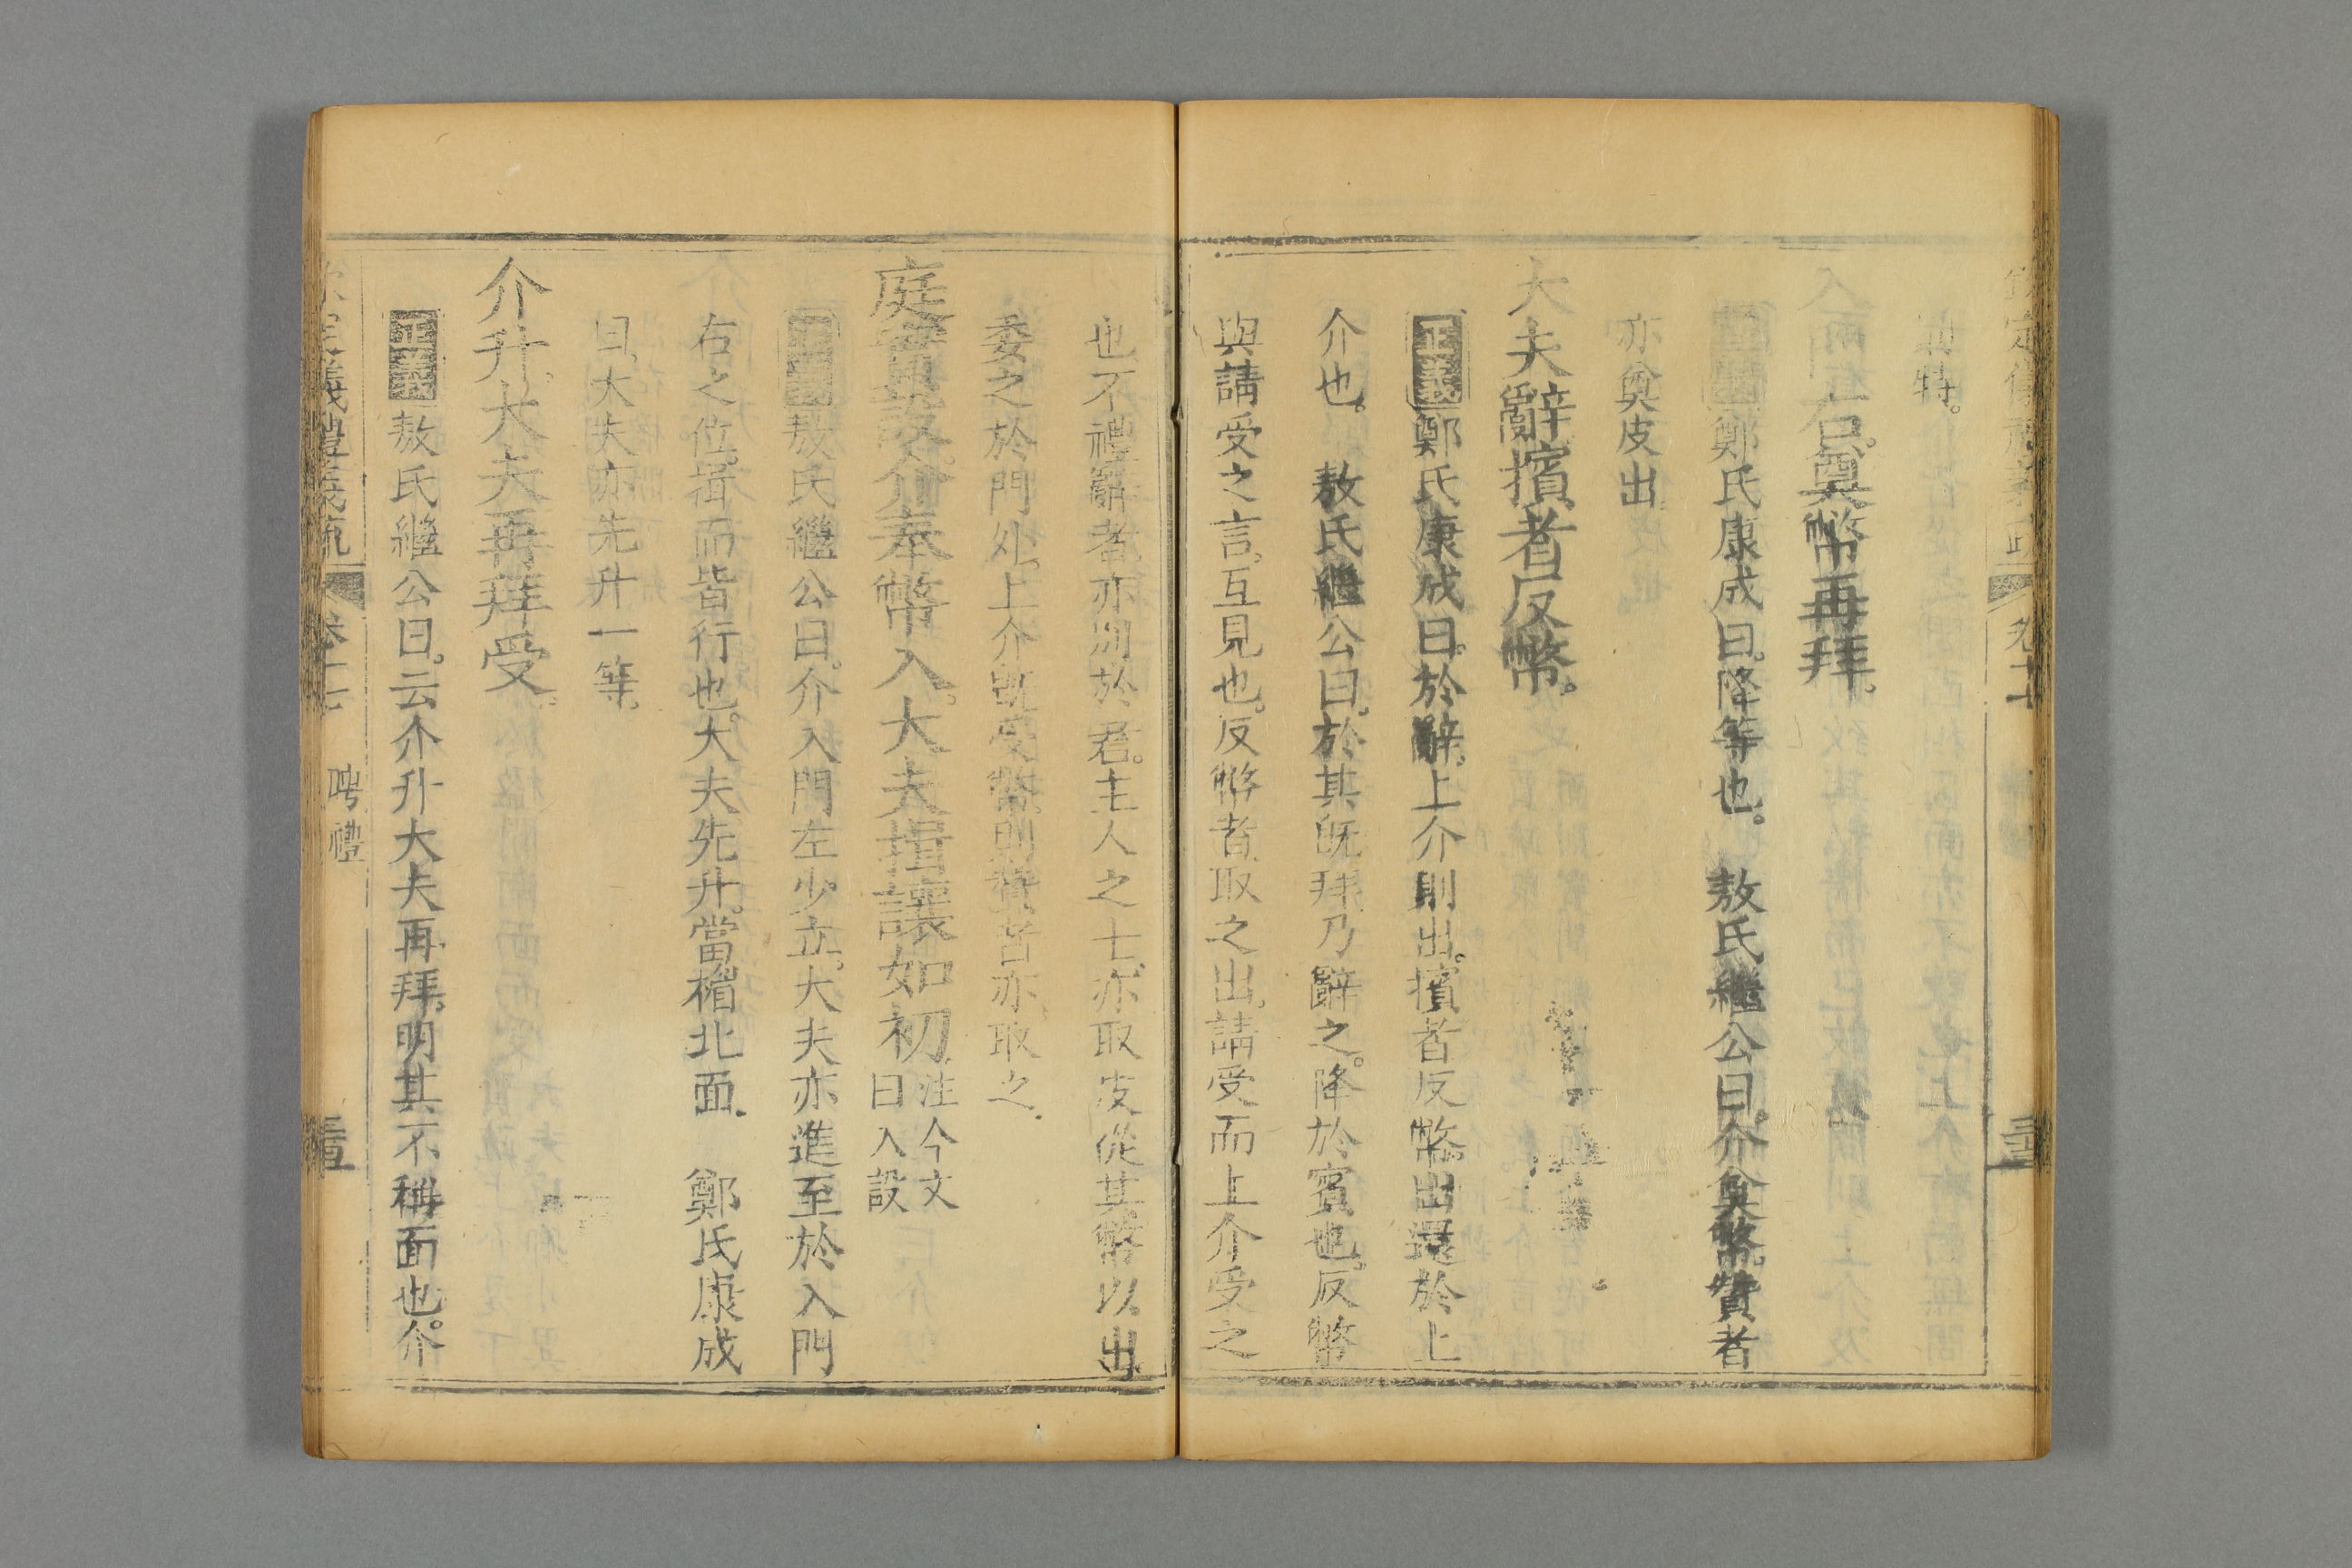 特。
入門右。奠幣再拜。
鄭氏康成曰。降等也。 敖氏繼公曰。介奠幣。贊者
亦奠皮出
大夫辭擯者反幣。
正義鄭氏康成曰。於辭。上介則出。擯者反幣。出還於上
介也。 敖氏繼公曰。於其旣拜乃辭之。降於賓也。反幣
與請受之言。互見也。反幣者。取之出。請受而上介受之
也。不禮辭者。亦別於君。主人之士。亦取皮從其幣以出
委之於門外。上介旣受幣。則贊者亦取之。
庭實設。介奉幣入。大夫揖讓如初
注今文
曰入設
敖氏繼公曰。介入門左。少立。大夫亦進至於入門
右之位。揖而皆行也。大夫先升。當楣北面。 鄭氏康成
曰。大夫亦先升一等。
介升。大夫再拜受。
正義敖氏繼公曰。云介升大夫再拜。明其不稱面也。介
欽定儀禮義疏 卷十七 聘禮